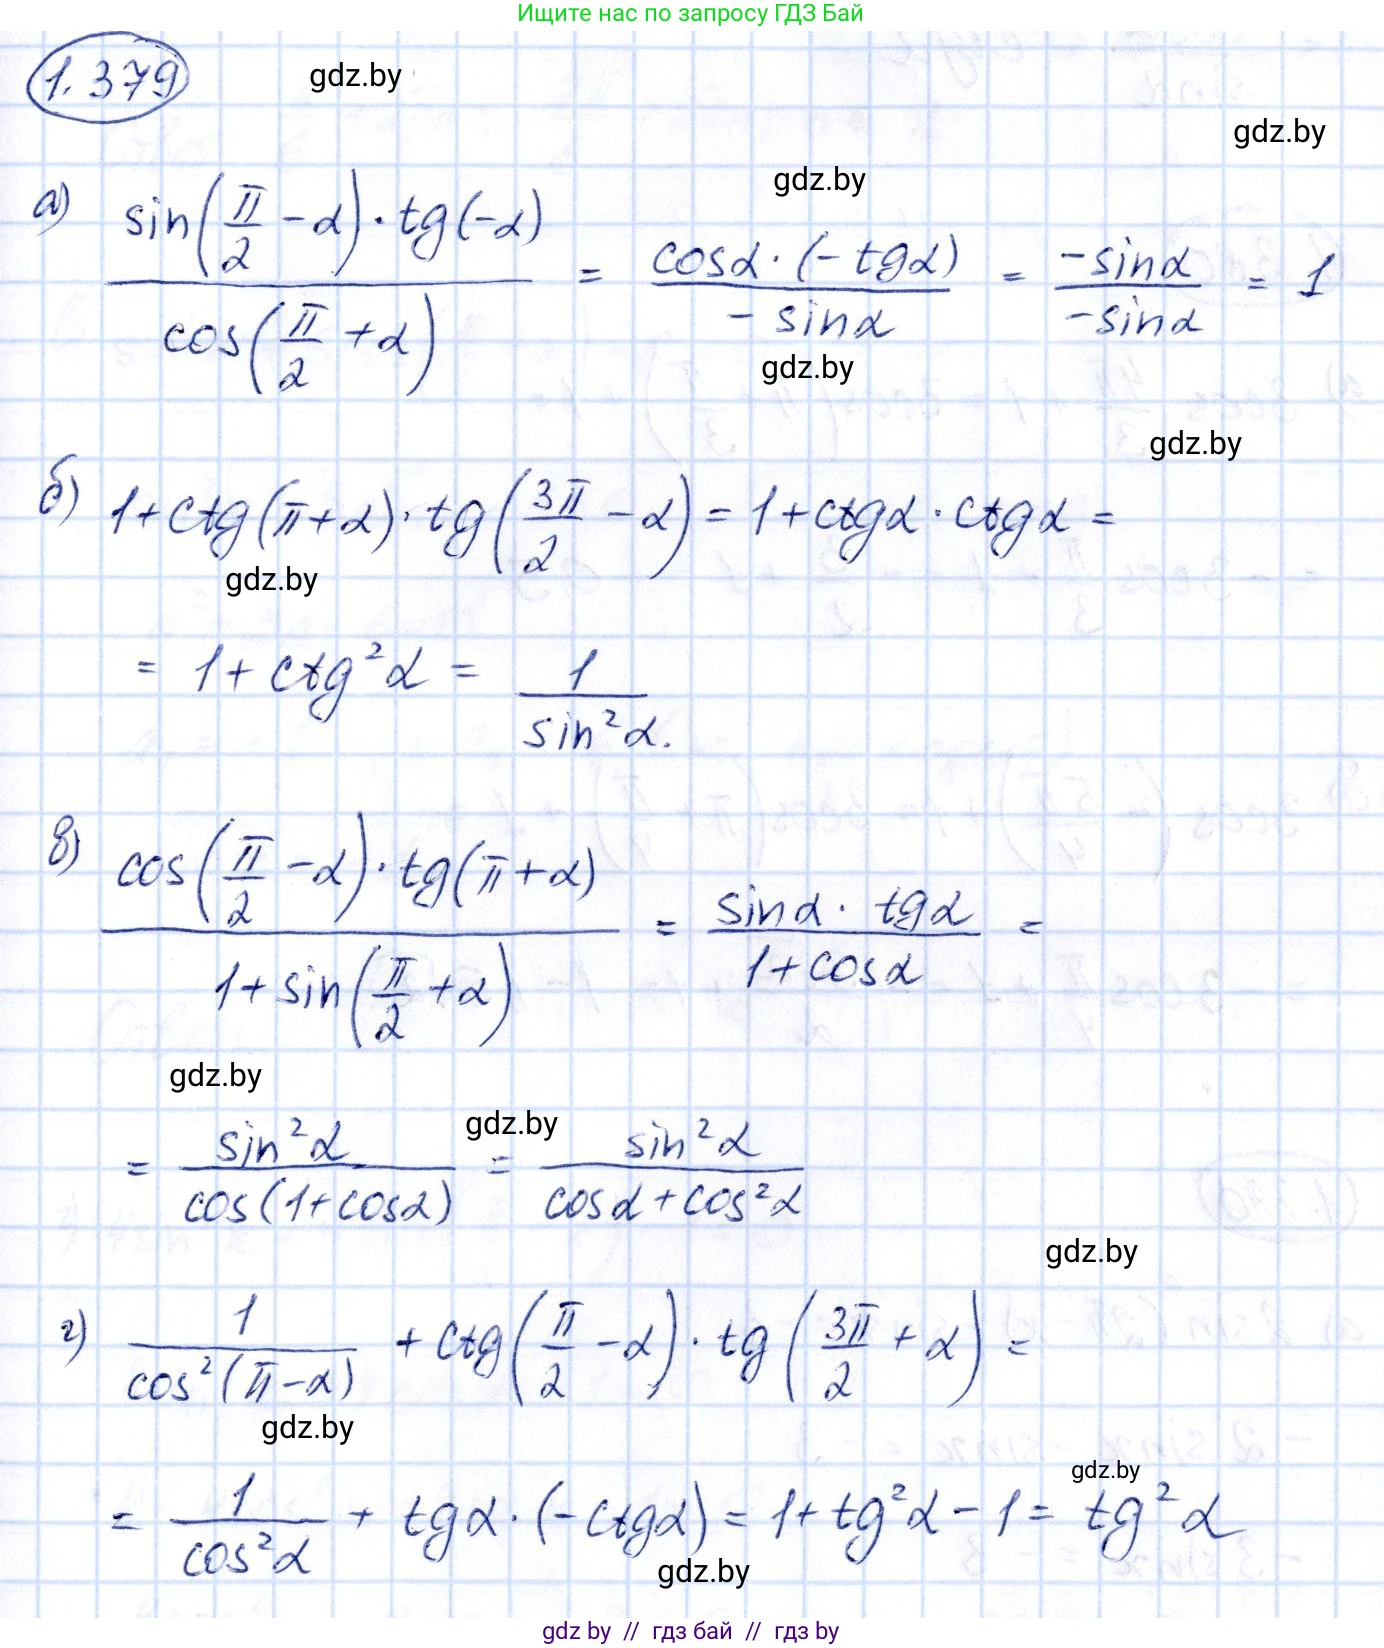 Ищите нас по запросу ГДЗ Бай
1.379
gdz.by
gdz.by
gdz.by
а) sin(π/2 - α) · tg(-α) / cos(π/2 + α) = cosα · (-tgα) / -sinα = -sinα / -sinα = 1
gdz.by
gdz.by
б) 1 + ctg(π + α) · tg(3π/2 - α) = 1 + ctgα · ctgα =
gdz.by
= 1 + ctg²α = 1 / sin²α.
в) cos(π/2 - α) · tg(π + α) / 1 + sin(π/2 + α) = sinα · tgα / 1 + cosα =
gdz.by
gdz.by
= sin²α / cos(1 + cosα) = sin²α / cosα + cos²α
gdz.by
г) 1 / cos²(π - α) + ctg(π/2 - α) · tg(3π/2 + α) =
gdz.by
gdz.by
= 1 / cos²α + tgα · (-ctgα) = 1 + tg²α - 1 = tg²α
gdz.by
gdz.by // гдз бай // гдз by